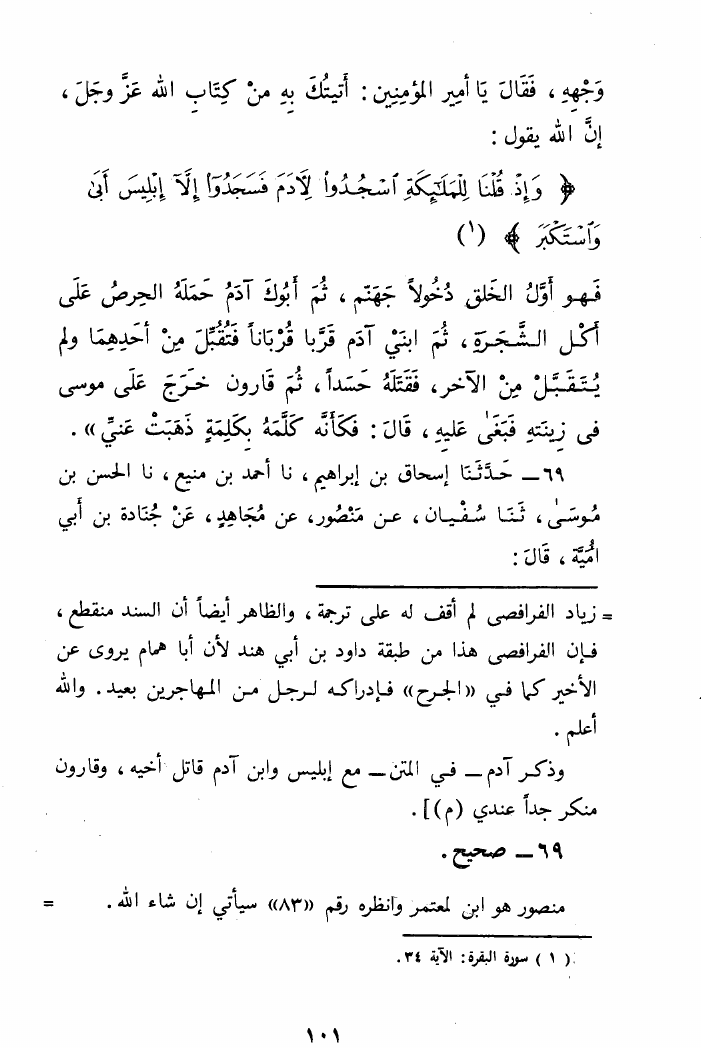 وَجْهِهِ ، فَقَالَ يَا أمِير المؤمِنِين : أَتيتُكَ بِهِ مِنْ كِتَابِ الله عَزَّ وجَلَ ،
إنَّ الله يقول :
﴿ وَإِذْ قُلْنَا لِلْمَلَـٰٓئِكَةِ ٱسْجُدُواْ لِأَدَمَ فَسَجَدُوٓاْ إِلَّآ إِبْلِيسَ أَبَىٰ
وَٱسْتَكْبَرَ ﴾ (١)
فَهو أوَّلُ الخَلق دُخُولاً جَهَنّم ، ثُمَ أَبُوكَ آدَمُ حَمَلَهُ الحِرصُ عَلَى
أَكْل الشَّجَرَةِ ، ثُمَ ابنَيْ آدَم قَرَّبا قُرْبَاناً فَتُقُبِّلَ مِنْ أحَدِهِمَا ولم
يُتَقَبَّلْ مِنْ الآخر، فَقَتَلَهُ حَسَداً، ثُمَّ قَارون خَرَجَ عَلَى موسى
فى زِينَتهِ فَبَغَىٰ عَليهِ ، قَالَ : فكَأنَّه كَلَّمَهُ بكَلِمَةٍ ذَهَبَتْ عَنيِّ» .
٦٩ــ حَدَّثَنَا إسحاق بن إبراهيم ، نا أحمد بن منيع ، نا الحسن بن
مُوسَىٰ ، ثَنَا سُفْيان ، عن مَنْصُور، عن مُجَاهِدٍ، عَنْ جُنَادة بن أَبي
امُيَّة ، قَالَ :
= زياد الفرافصى لم أقف له على ترجمة ، والظاهر أيضاً أن السند منقطع ،
فإن الفرافصى هذا من طبقة داود بن أبي هند لأن أبا همام يروى عن
الأخير كما في «الجرح» فإدراكه لرجل من المهاجرين بعيد. والله
أعلم .
وذكر آدم ــ في المتن ــ مع إبليس وابن آدم قاتل أخيه ، وقارون
منكر جداً عندي (م)] .
٦٩ ــ صحيح .
منصور هو ابن لمعتمر وانظره رقم «٨٣» سيأتي إن شاء الله . =
( ١ ) سورة البقرة : الآية ٣٤ .
١٠١